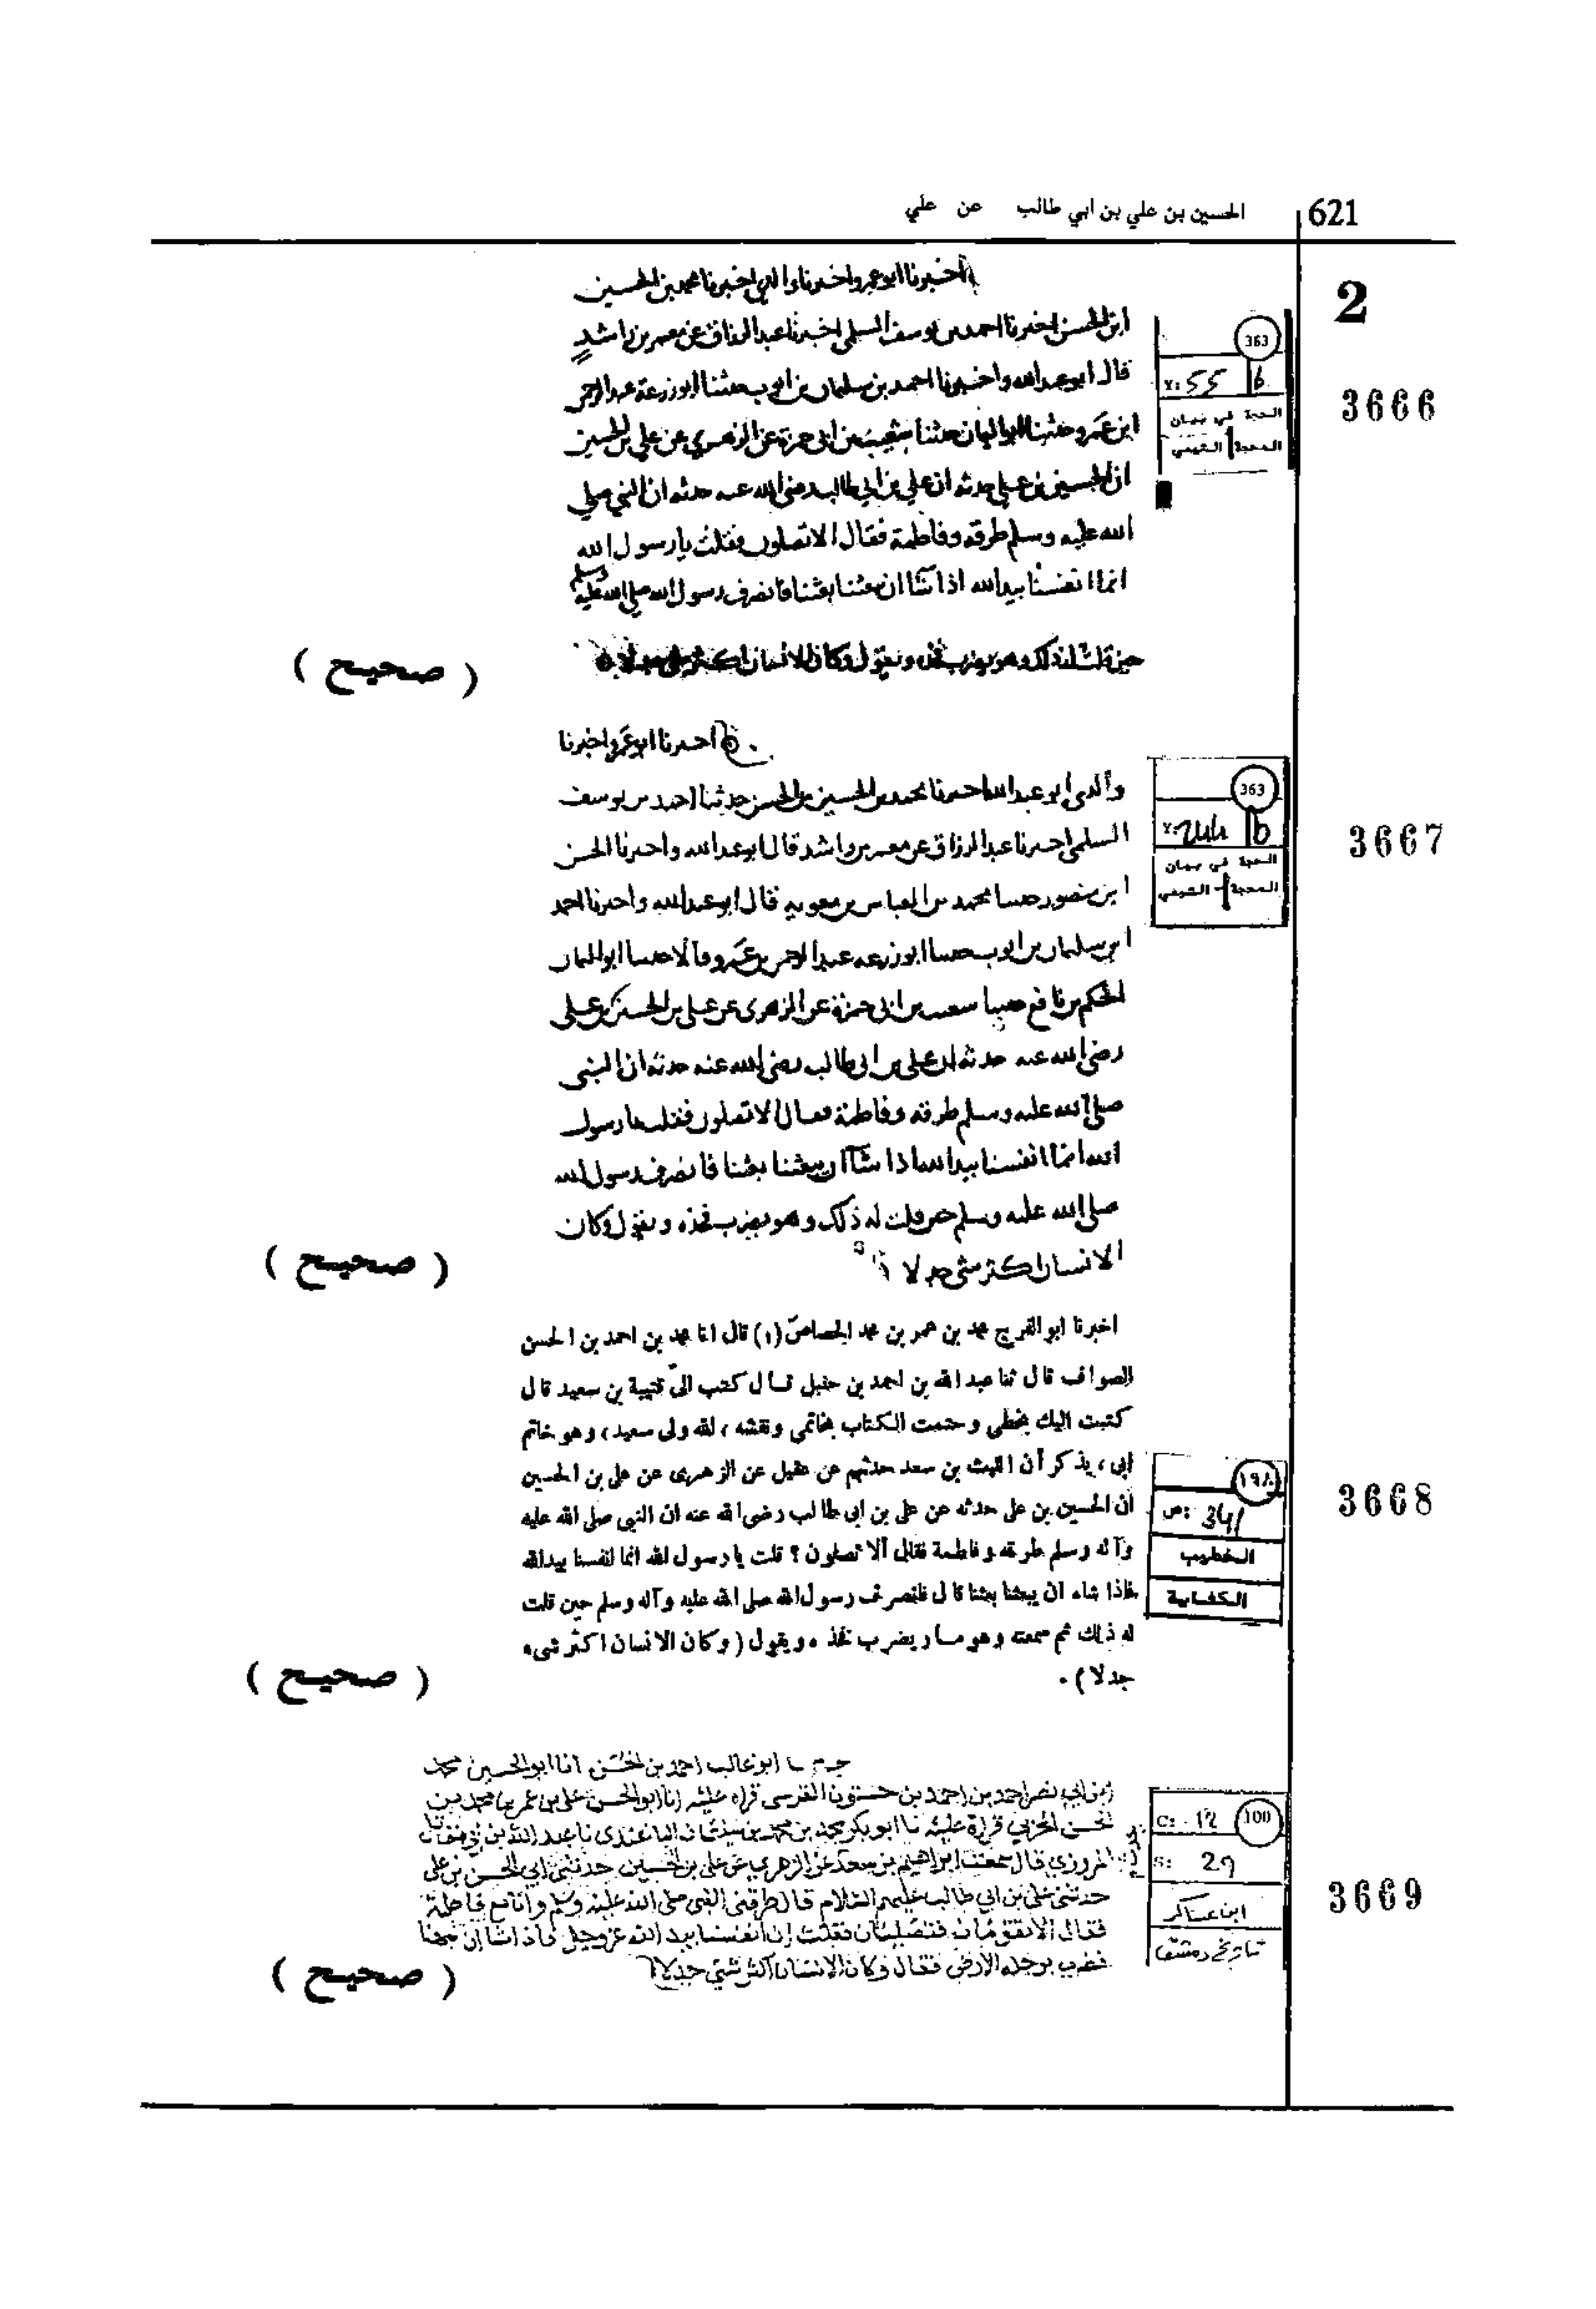 621
الحسين بن علي بن ابي طالب عن علي
2
اخبرنا ابو عمرو اخبرنا والدي اخبرنا محمد بن الحسين
ابن الحسن اخبرنا احمد بن يوسف السلمي اخبرنا عبد الرزاق عن معمر بن راشد
قال ابو عبد الله واخبرنا احمد بن سلمان بن ايوب حدثنا ابو زرعة عبد الرحمن
ابن عمرو حدثنا ابو اليمان حدثنا شعيب بن ابي حمزة عن الزهري عن علي بن الحسين
ان الحسين بن علي حدثه ان علي بن ابي طالب رضي الله عنه حدثه ان النبي صلي
الله عليه وسلم طرقه وفاطمة فقال الا تصلون فقلت يا رسول الله
انما انفسنا بيد الله اذا شآ ان يبعثنا بعثنا فانصرف رسول الله صلي الله عليه وسلم
حين قلت له ذلك وهو يضرب فخذه ويقول وكان الانسان اكثر شي جدلا
( صحيح )
363
Y: 55 b
الحجة في بيان
المحجة التيمي
3666
احبرنا ابو عمرو اخبرنا
والدي ابو عبد الله احبرنا محمد بن الحسين بن الحسن حدثنا احمد بن يوسف
السلمي احبرنا عبد الرزاق عن معمر بن راشد قال ابو عبد الله واحبرنا الحسن
ابن منصور حدسا محمد بن العباس بن معويه قال ابو عبد الله واحبرنا احمد
ابن سلمان بن ايوب حدسا ابو زرعه عبد الرحمن بن عمرو قالا حدسا ابو اليمان
الحكم بن نافع حدسا شعيب بن ابي حمزة عن الزهري عن علي بن الحسين بن علي
رضي الله عنه حدثه ان علي بن ابي طالب رضي الله عنه حدثه ان النبي
صلى الله عليه وسلم طرقه وفاطمة فقال الا تصلون فقلت يا رسول
الله انما انفسنا بيد الله اذا شآ ان يبعثنا بعثنا فانصرف رسول الله
صلى الله عليه وسلم حين قلت له ذلك وهو يضرب فخذه ويقول وكان
الانسان اكثر شي جدلا
( صحيح )
363
Y: 244 b
الحجة في بيان
المحجة - التيمي
3667
اخبرنا ابو الفرج محمد بن عمر بن محمد الجصاص (١) قال انا محمد بن احمد بن الحسن
الصواف قال ثنا عبد الله بن احمد بن حنبل قال كتب الىّ قتيبة بن سعيد قال
كتبت اليك بخطى وختمت الكتاب بخاتمى ونقشه ، الله ولى سعيد ، وهو خاتم
ابى ، يذكر أن الليث بن سعد حدثهم عن عقيل عن الزهرى عن على بن الحسين
أن الحسين بن على حدثه عن على بن ابى طالب رضى الله عنه ان النبى صلى الله عليه
وآله وسلم طرقه وفاطمة فقال ألا تصلون ؟ قلت يا رسول الله انما انفسنا بيد الله
فاذا شاء ان يبعثنا بعثنا قال فانصرف رسول الله صلى الله عليه وآله وسلم حين قلت
له ذلك ثم سمعته وهو مار يضرب فخذه ويقول (وكان الانسان اكثر شىء
جدلا) .
( صحيح )
١٩٨
ص: 341
الخطيب
الكفاية
3668
ابو غالب احمد بن الحسن انا ابو الحسين محمد
ابن ابي نصر احمد بن احمد بن حسنون القرسى قراه عليه انا ابو الحسن على بن عمر بن محمد بن
الحسن الحربي قراة عليه نا ابو بكر محمد بن محمد بن سليمان الباغندى نا عبد الله بن
المروزي قال سمعت ابراهيم بن سعد عن الزهري عن على بن الحسين حدثنى ابي الحسين بن على
حدثنى على بن ابي طالب عليهم السلام قال طرقنى النبى صلى الله عليه وسلم وانا مع فاطمة
فقال الا تقومان فتصليان فقلت ان انفسنا بيد الله عز وجل
فضرب بيده الأرض فقال وكان الانسان اكثر شئ جدلا
( صحيح )
100
C: 12
S: 29
ابن عساكر
تاريخ دمشق
3669